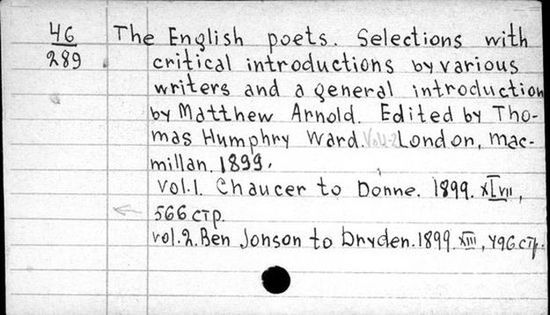 46
289
The English poets. Selections with
critical introductions by various
writers and a general introduction
by Matthew Arnold. Edited by Tho-
mas Humphry Ward. London, Mac-
millan. 1899.
vol.1. Chaucer to Donne. 1899. XLVII,
566 стр.
vol.2. Ben Jonson to Dryden. 1899. XIII, 496 стр.